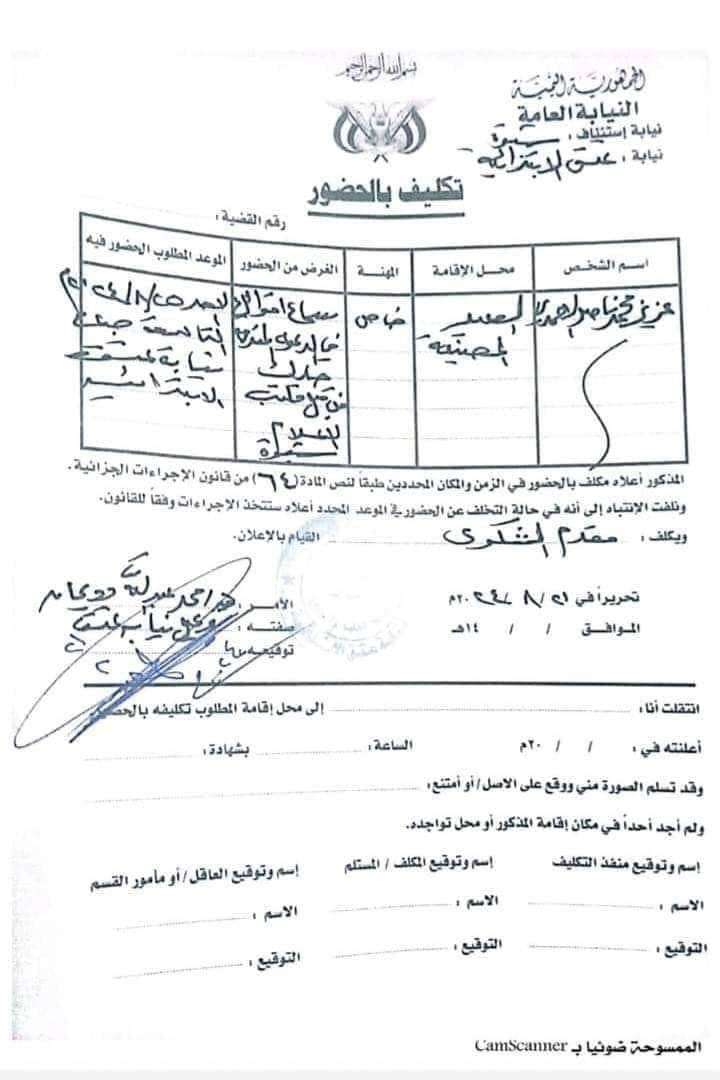 بسم الله الرحمن الرحيم
الجمهورية اليمنية
النيابة العامة
نيابة إستئناف : شبوة
نيابة : عتق الابتدائية
تكليف بالحضور
رقم القضية :
اسم الشخص محل الإقامة المهنة الغرض من الحضور الموعد المطلوب الحضور فيه
عزيز محمد ناصر الاحمدي
الصعيد
المصينعة
سماع اقوالك
في الدعوى المقدمة
ضدك
من قبل مكتب
الاعلام
شبوة
الاحد ٢٠٢٤/٨/٢٥م
التاسعة صباحا
نيابة عتق
الابتدائية
المذكور أعلاه مكلف بالحضور في الزمن والمكان المحددين طبقاً لنص المادة (٦٤) من قانون الإجراءات الجزائية.
ونلفت الإنتباه إلى أنه في حالة التخلف عن الحضور في الموعد المحدد أعلاه ستتخذ الإجراءات وفقاً للقانون.
ويكلف : مقدم الشكوى القيام بالإعلان.
تحريراً في ٢١ / ٨ / ٢٠٢٤م
الموافق / / ١٤هـ
الأمر : احمد عبدالله
صفته : وكيل نيابة عتق
توقيعه
انتقلت أنا : إلى محل إقامة المطلوب تكليفه بالحضور
أعلنته في : / / ٢٠م الساعة : بشهادة :
وقد تسلم الصورة مني ووقع على الاصل/ أو أمتنع :
ولم أجد أحداً في مكان إقامة المذكور أو محل تواجده.
إسم وتوقيع منفذ التكليف إسم وتوقيع المكلف / المستلم إسم وتوقيع العاقل/ أو مأمور القسم
الاسم : الاسم : الاسم :
التوقيع : التوقيع : التوقيع :
الممسوحة ضوئيا بـ CamScanner